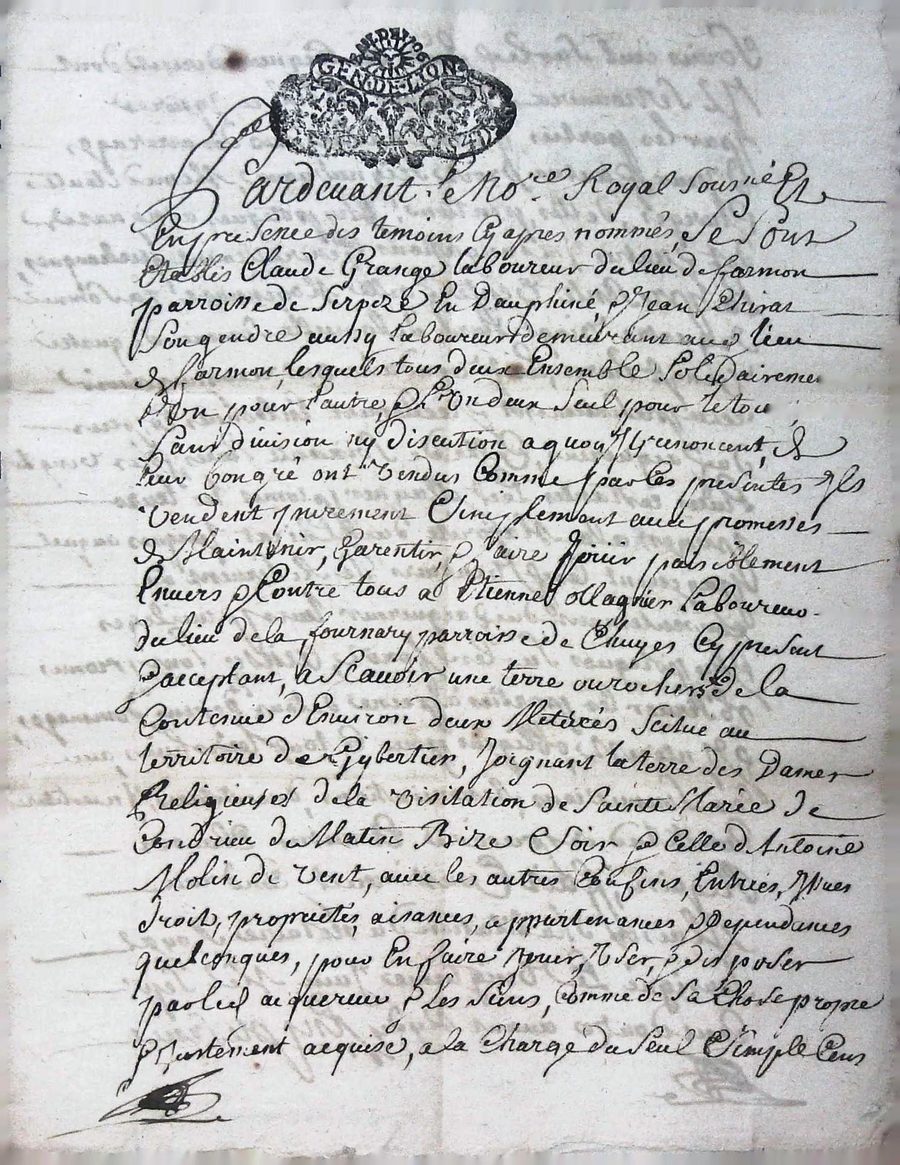 GEN.DE.LION
Pardevant le No.re Royal Sousné Et
En presence des temoins Cy apres nommés, Se Sont
Etablis Claude Grange laboureur du lieu de farmon
parroisse de Serpeze En Dauphiné, & Jean Chirat
Son gendre aussy Laboureur demeurant aud. lieu
de farmon, lesquels tous deux Ensemble Solidaireme
l'Un pour l'autre, & l'Un deux Seul pour le tou
Sans division ny discution a quoy Ils renoncent, de
leur bongré ont vendus Comme par les presentes Ils
vendent purement Et Simplement aux promesses
de Maintenir, Garentir, & faire Jouir paisiblement
Envers & Contre tous a Etienne Ollagnier Laboureur
du lieu de la fournary parroisse de Chuyes Cy present
& acceptant, a Scavoir une terre ou rochers de la
Contenue d'Environ deux Meterés Scitue au
territoire de Gybertin, Joignant la terre des Dames
Religieuses de la Visitation de Sainte Marie de
Condrieu de Matin Bize & Soir & Celle d'Antoine
Molin de Vent, avec les autres Confins, Entrées, Issues
droit, proprietés, aisances, appartenances & Dependances
quelconques, pour En faire Jouir, User, & disposer
par led. acquereur & les Siens, Comme de Sa Chose propre
& Justement acquise, a la Charge du Seul & Simple Cens